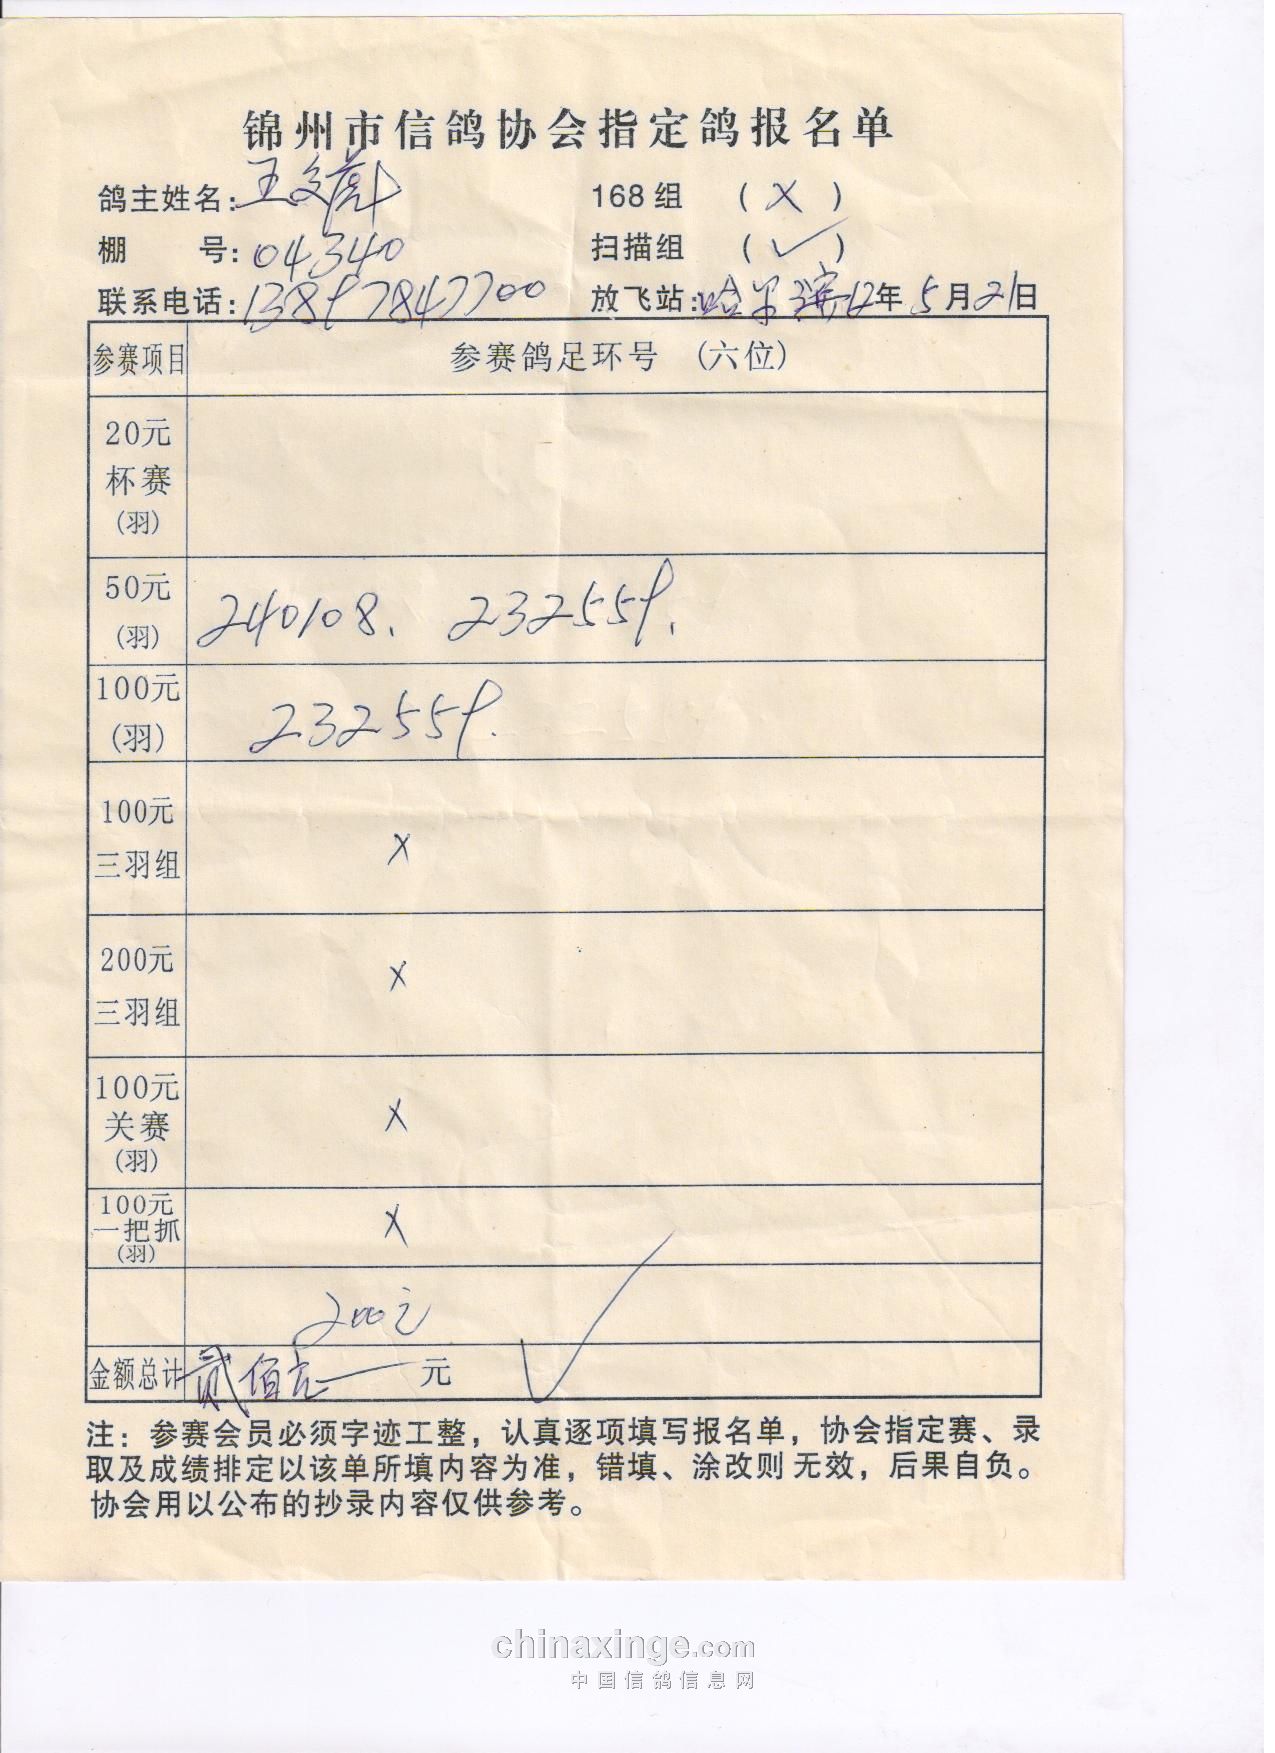 锦州市信鸽协会指定鸽报名单
鸽主姓名: 王文彪 168组 ( X )
棚 号: 04340 扫描组 ( ✓ )
联系电话: 13897847700 放飞站: 哈尔滨 12年 5月21日
参赛项目 参赛鸽足环号 (六位)
20元
杯赛
(羽)
50元
(羽) 240108. 232559.
100元
(羽) 232559.
100元
三羽组 X
200元
三羽组 X
100元
关赛
(羽) X
100元
一把抓
(羽) X
200元 ✓
金额总计 贰佰元 元
注: 参赛会员必须字迹工整, 认真逐项填写报名单, 协会指定赛、录
取及成绩排定以该单所填内容为准, 错填、涂改则无效, 后果自负。
协会用以公布的抄录内容仅供参考。
chinaxinge.com
中国信鸽信息网